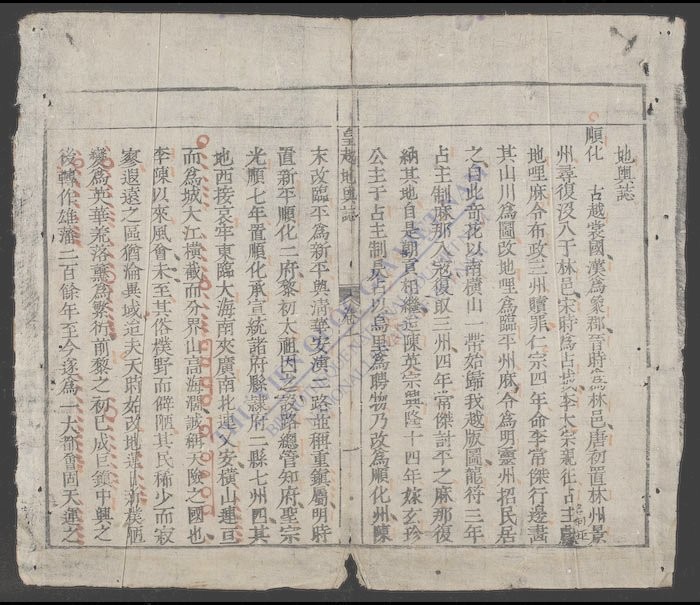 地輿誌
順化 古越裳國漢為象郡晉時為林邑唐初置林州景
州尋復沒入于林邑宋時為占城李太宗親征占主
地哩麻令布政三州贖罪仁宗四年命李常傑行邊畫
其山川為圖改地哩為臨平州麻令為明靈州招民居
之自此奇花以南橫山一帶始歸我越版圖龍符三年
占主制麻那入寇復取三州四年常傑討平之麻那復
納其地自是朝貢相繼迄陳英宗興隆十四年嫁玄珍
公主于占主制旻占以烏里為聘物乃改為順化州陳
皇越地輿誌 一
末改臨平為新平與清華安演三路並稱重鎮屬明時
置新平順化二府黎初太祖因之設路總管知府聖宗
光順七年置順化承宣統諸府縣隸府二縣七州四其
地西接哀牢東臨大海南夾廣南北連乂安橫山連亘
而為城大江橫截而分界山高海濶誠稱天險之國也
李陳以來風會未至其俗樸野而僻陋其民稀少而寂
寥遐遠之區猶淪異域迨夫天時始改地運以新樸陋
變為英華荒落薰為繁衍前黎之初已成巨鎮中興之
後轉作雄藩二百餘年至今遂為一大都會固天運之